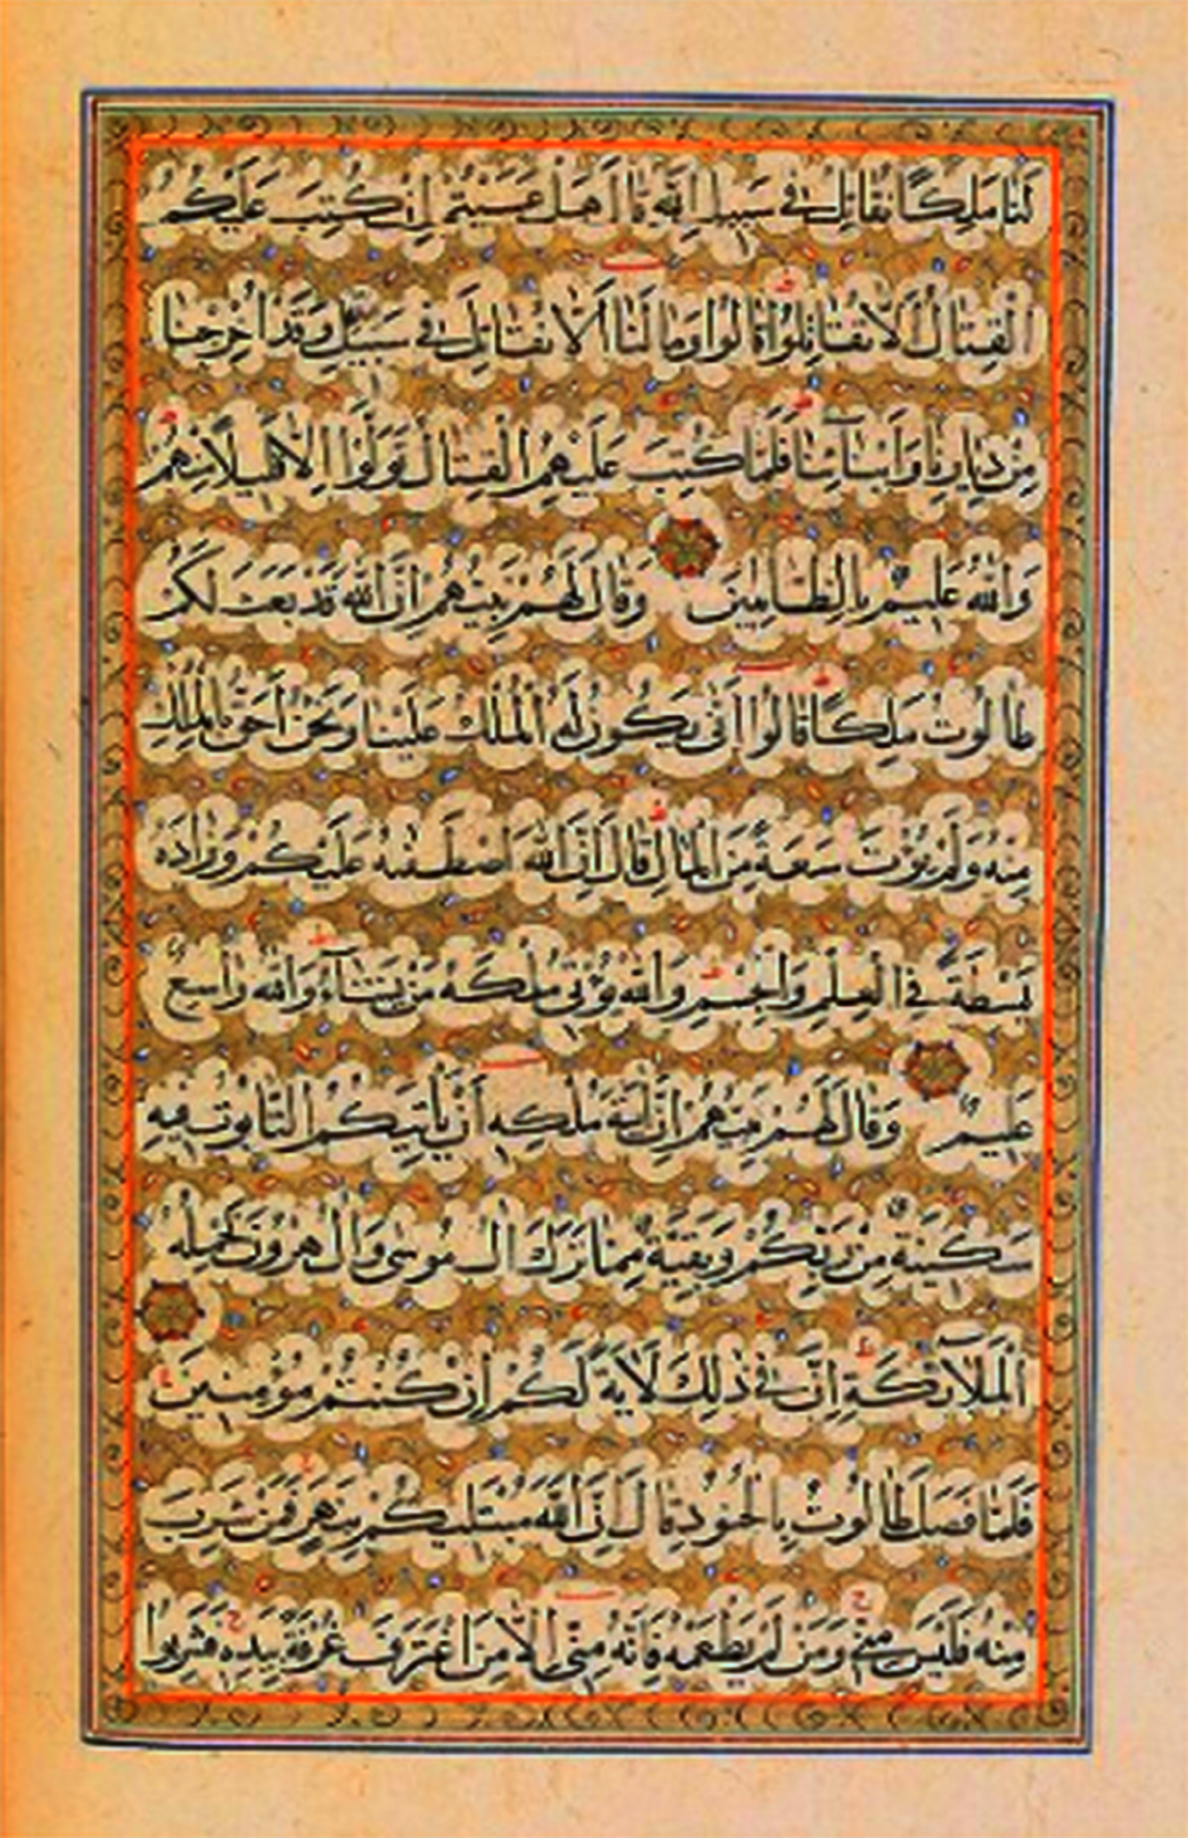 لَنَا مَلِكًا نُقَاتِلْ فِي سَبِيلِ اللَّهِ قَالَ هَلْ عَسَيْتُمْ إِنْ كُتِبَ عَلَيْكُمُ
الْقِتَالُ أَلَّا تُقَاتِلُوا قَالُوا وَمَا لَنَا أَلَّا نُقَاتِلَ فِي سَبِيلِ وَقَدْ أُخْرِجْنَا
مِنْ دِيَارِنَا وَأَبْنَائِنَا فَلَمَّا كُتِبَ عَلَيْهِمُ الْقِتَالُ تَوَلَّوْا إِلَّا قَلِيلًا مِنْهُمْ
وَاللَّهُ عَلِيمٌ بِالظَّالِمِينَ وَقَالَ لَهُمْ نَبِيُّهُمْ إِنَّ اللَّهَ قَدْ بَعَثَ لَكُمْ
طَالُوتَ مَلِكًا قَالُوا أَنَّى يَكُونُ لَهُ الْمُلْكُ عَلَيْنَا وَنَحْنُ أَحَقُّ بِالْمُلْكِ
مِنْهُ وَلَمْ يُؤْتَ سَعَةً مِنَ الْمَالِ قَالَ إِنَّ اللَّهَ اصْطَفٰيهُ عَلَيْكُمْ وَزَادَهُ
بَسْطَةً فِي الْعِلْمِ وَالْجِسْمِ وَاللَّهُ يُؤْتِي مُلْكَهُ مَنْ يَشَآءُ وَاللَّهُ وَاسِعٌ
عَلِيمٌ وَقَالَ لَهُمْ نَبِيُّهُمْ إِنَّ آيَةَ مُلْكِهِ أَنْ يَأْتِيَكُمُ التَّابُوتُ فِيهِ
سَكِينَةٌ مِنْ رَبِّكُمْ وَبَقِيَّةٌ مِمَّا تَرَكَ آلُ مُوسَى وَآلُ هٰرُونَ تَحْمِلُهُ
الْمَلَآئِكَةُ إِنَّ فِي ذَلِكَ لَآيَةً لَكُمْ إِنْ كُنْتُمْ مُؤْمِنِينَ
فَلَمَّا فَصَلَ طَالُوتُ بِالْجُنُودِ قَالَ إِنَّ اللَّهَ مُبْتَلِيكُمْ بِنَهَرٍ فَمَنْ شَرِبَ
مِنْهُ فَلَيْسَ مِنِّي وَمَنْ لَمْ يَطْعَمْهُ فَإِنَّهُ مِنِّي إِلَّا مَنِ اغْتَرَفَ غُرْفَةً بِيَدِهِ فَشَرِبُوا